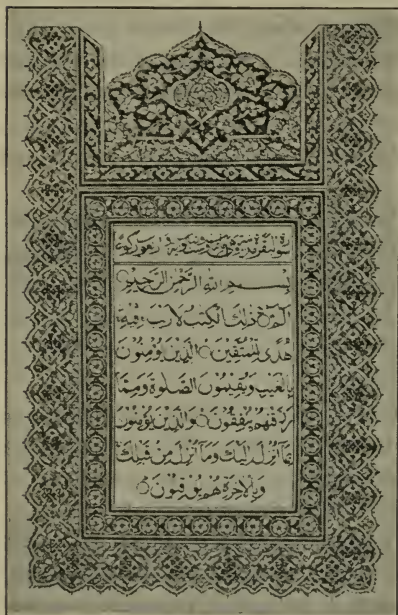 سورة البقرة
بِسْمِ اللّٰهِ الرَّحْمٰنِ الرَّحِيْمِ
الٓمّٓ ۚ ذٰلِكَ الْكِتٰبُ لَا رَيْبَ فِيْهِ
هُدًى لِّلْمُتَّقِيْنَ ۝ الَّذِيْنَ يُؤْمِنُوْنَ
بِالْغَيْبِ وَيُقِيْمُوْنَ الصَّلٰوةَ وَمِمَّا
رَزَقْنٰهُمْ يُنْفِقُوْنَ ۝ وَالَّذِيْنَ يُؤْمِنُوْنَ
بِمَآ اُنْزِلَ اِلَيْكَ وَمَآ اُنْزِلَ مِنْ قَبْلِكَ
وَبِالْاٰخِرَةِ هُمْ يُوْقِنُوْنَ ۝